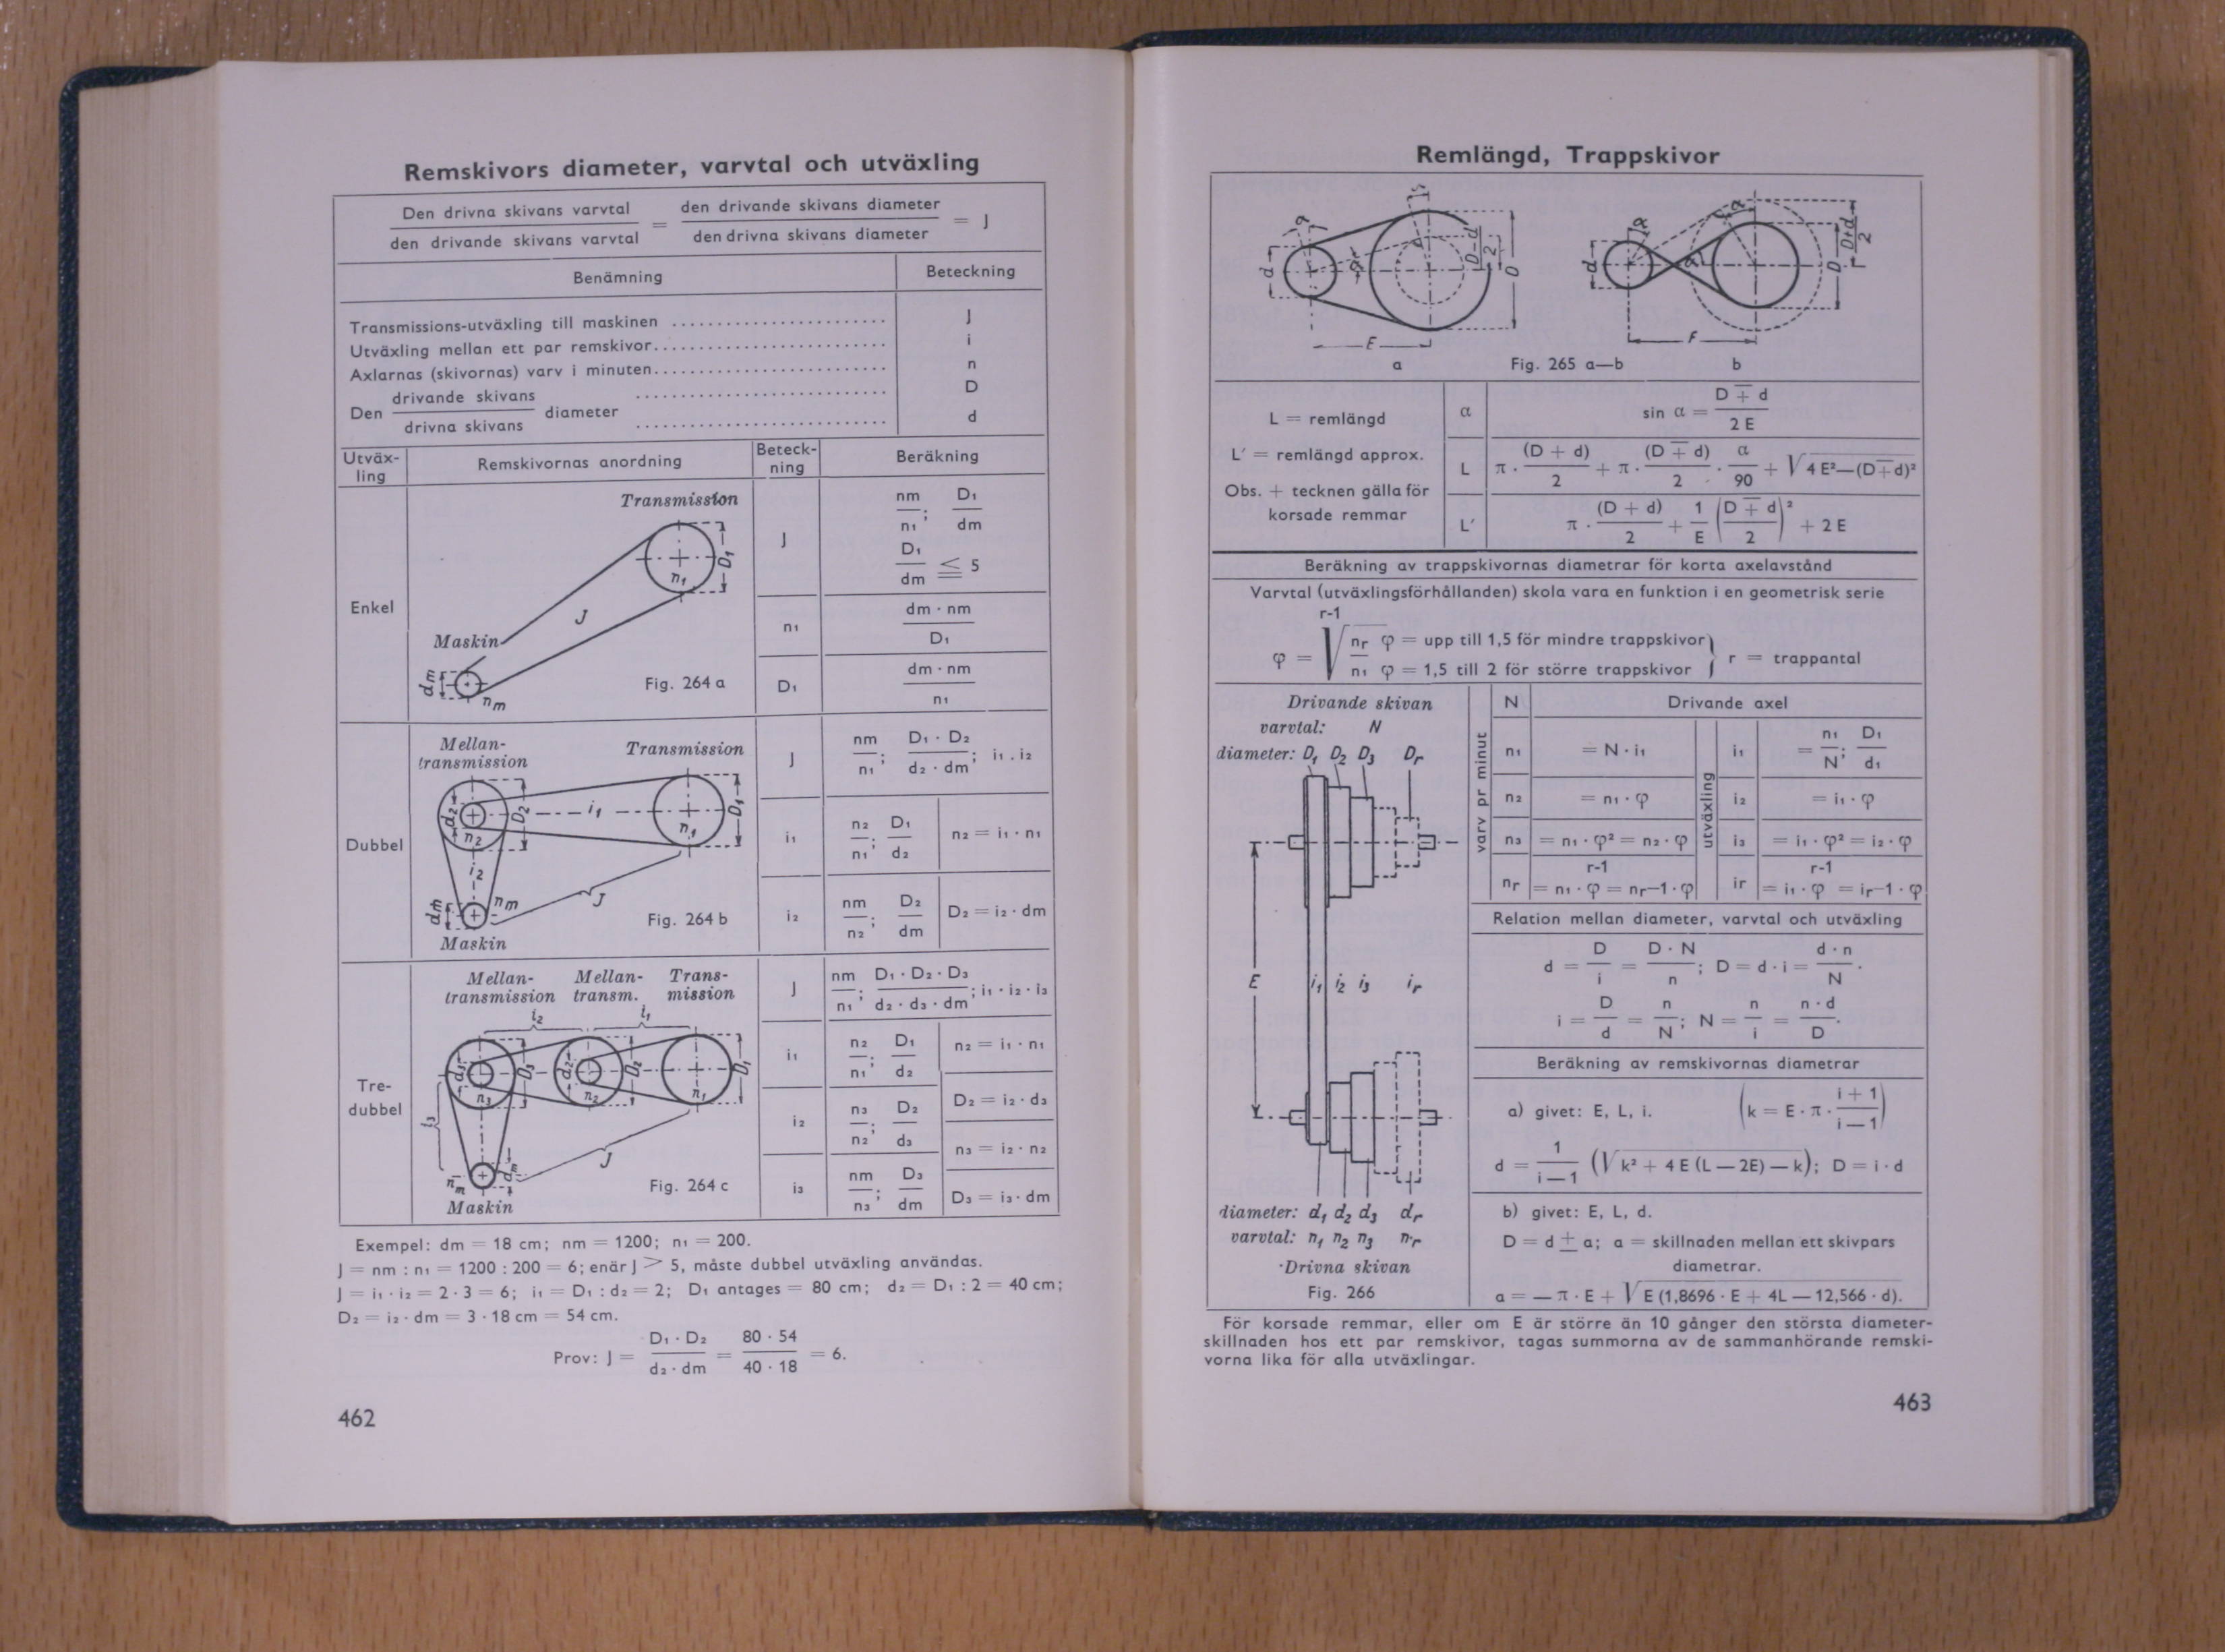 Remskivors diameter, varvtal och utväxling
Den drivna skivans varvtal / den drivande skivans varvtal = den drivande skivans diameter / den drivna skivans diameter = J
Benämning Beteckning
Transmissions-utväxling till maskinen ........................ J
Utväxling mellan ett par remskivor........................... i
Axlarnas (skivornas) varv i minuten........................... n
Den drivande skivans / drivna skivans diameter
........................... D
........................... d
Utväx-
ling
Remskivornas anordning
Beteck-
ning
Beräkning
Enkel
Transmission
D₁
n₁
J
Maskin
dm
nm
Fig. 264 a
J nm / n₁ ; D₁ / dm
D₁ / dm ≦ 5
n₁ dm · nm / D₁
D₁ dm · nm / n₁
Dubbel
Mellan-
transmission
Transmission
d₂ n₂ D₂ i₁ n₁ D₁
i₂
J
dm nm
Maskin
Fig. 264 b
J nm / n₁ ; D₁ · D₂ / d₂ · dm ; i₁ . i₂
i₁ n₂ / n₁ ; D₁ / d₂ n₂ = i₁ · n₁
i₂ nm / n₂ ; D₂ / dm D₂ = i₂ · dm
Tre-
dubbel
Mellan-
transmission
Mellan-
transm.
Trans-
mission
i₂ i₁
d₃ n₃ D₃ d₂ n₂ D₂ n₁ D₁
i₃
J
nm dm
Maskin
Fig. 264 c
J nm / n₁ ; D₁ · D₂ · D₃ / d₂ · d₃ · dm ; i₁ · i₂ · i₃
i₁ n₂ / n₁ ; D₁ / d₂ n₂ = i₁ · n₁
i₂ n₃ / n₂ ; D₂ / d₃ D₂ = i₂ · d₃
n₃ = i₂ · n₂
i₃ nm / n₃ ; D₃ / dm D₃ = i₃ · dm
Exempel: dm = 18 cm; nm = 1200; n₁ = 200.
J = nm : n₁ = 1200 : 200 = 6; enär J > 5, måste dubbel utväxling användas.
J = i₁ · i₂ = 2 · 3 = 6; i₁ = D₁ : d₂ = 2; D₁ antages = 80 cm; d₂ = D₁ : 2 = 40 cm;
D₂ = i₂ · dm = 3 · 18 cm = 54 cm.
Prov: J = D₁ · D₂ / d₂ · dm = 80 · 54 / 40 · 18 = 6.
462
Remlängd, Trappskivor
d α α α D-d / 2 D
E
d α α α D D+d / 2
F
a Fig. 265 a—b b
L = remlängd
L′ = remlängd approx.
Obs. + tecknen gälla för
korsade remmar
α sin α = D ∓ d / 2 E
L π · (D + d) / 2 + π · (D ∓ d) / 2 · α / 90 + √ 4 E²—(D∓d)²
L′ π · (D + d) / 2 + 1 / E (D ∓ d / 2)² + 2 E
Beräkning av trappskivornas diametrar för korta axelavstånd
Varvtal (utväxlingsförhållanden) skola vara en funktion i en geometrisk serie
r-1
φ = √ nr / n₁
φ = upp till 1,5 för mindre trappskivor
φ = 1,5 till 2 för större trappskivor
} r = trappantal
Drivande skivan
varvtal: N
diameter: D₁ D₂ D₃ Dr
E
i₁ i₂ i₃ ir
diameter: d₁ d₂ d₃ dr
varvtal: n₁ n₂ n₃ nr
Drivna skivan
Fig. 266
varv pr minut
utväxling
N Drivande axel
n₁ = N · i₁ i₁ = n₁ / N ; D₁ / d₁
n₂ = n₁ · φ i₂ = i₁ · φ
n₃ = n₁ · φ² = n₂ · φ i₃ = i₁ · φ² = i₂ · φ
r-1 r-1
nr = n₁ · φ = nr—1 · φ ir = i₁ · φ = ir—1 · φ
Relation mellan diameter, varvtal och utväxling
d = D / i = D · N / n ; D = d · i = d · n / N .
i = D / d = n / N ; N = n / i = n · d / D .
Beräkning av remskivornas diametrar
a) givet: E, L, i. (k = E · π · i + 1 / i — 1)
d = 1 / i — 1 (√ k² + 4 E (L — 2E) — k); D = i · d
b) givet: E, L, d.
D = d ± a; a = skillnaden mellan ett skivpars
diametrar.
a = — π · E + √ E (1,8696 · E + 4L — 12,566 · d).
För korsade remmar, eller om E är större än 10 gånger den största diameter-
skillnaden hos ett par remskivor, tagas summorna av de sammanhörande remski-
vorna lika för alla utväxlingar.
463